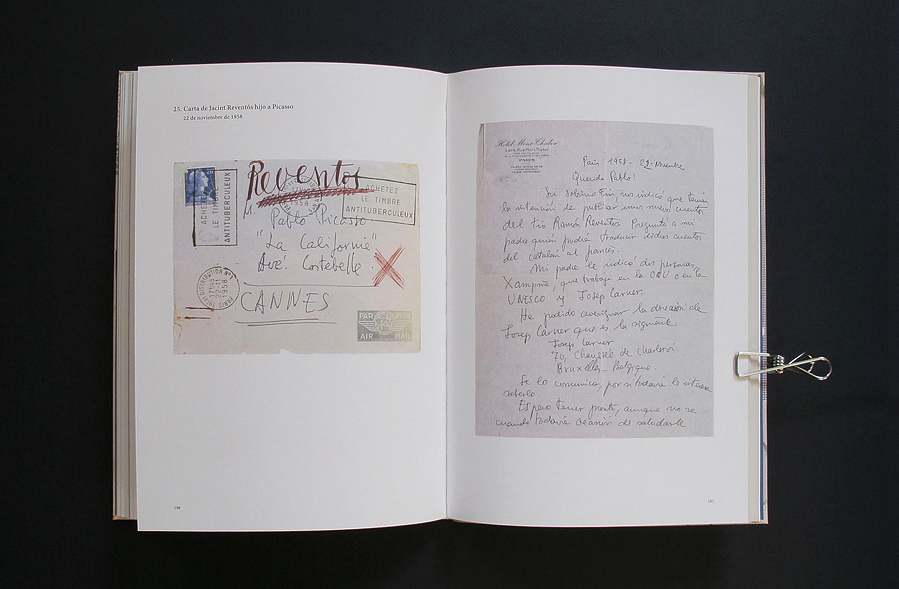 25. Carta de Jacint Reventós hijo a Picasso
22 de noviembre de 1958
Reventos
ACHETEZ
LE TIMBRE
ANTITUBERCULEUX
ACHETEZ
LE TIMBRE
ANTITUBERCULEUX
M. Pablo Picasso
"La Californie"
Ave. Costebelle
CANNES
PARIS
22-11
1958
PAR AVION
AIR MAIL
196
Hotel Mont-Thabor
PARIS
Paris 1958-22-Novembre
Querido Pablo:
Su sobrino Fin, nos indicó que tenía
la intención de publicar unos nuevos cuentos
del tío Ramón Reventós. Preguntó a mi
padre quién podría traducir dichos cuentos
del catalán al francés.
Mi padre le indicó dos personas,
Xampiné, que trabaja en la ONU o en la
UNESCO y Josep Carner.
He podido averiguar la dirección de
Josep Carner que es la siguiente
Josep Carner
70, Chaussée de Charleroi
Bruxelles - Belgique.
Se lo comunico, por si todavía le interesa
saberlo.
Espero tener pronto, aunque no se
cuando todavía ocasión de saludarle
197